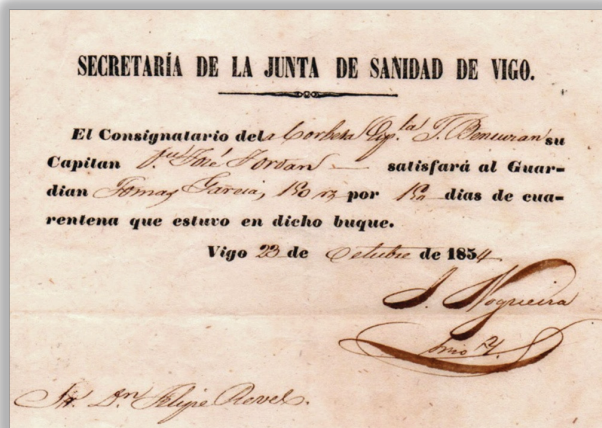 SECRETARÍA DE LA JUNTA DE SANIDAD DE VIGO.
El Consignatario dela Corbeta Esp.la S. Bonuran su
Capitan Dn José Jordan satisfará al Guar-
dian Tomas Garcia, 150 rs por 15 dias de cua-
rentena que estuvo en dicho buque.
Vigo 23 de Octubre de 1854
J. Nogueira
Srio
Sr. Dn Felipe Rovel.